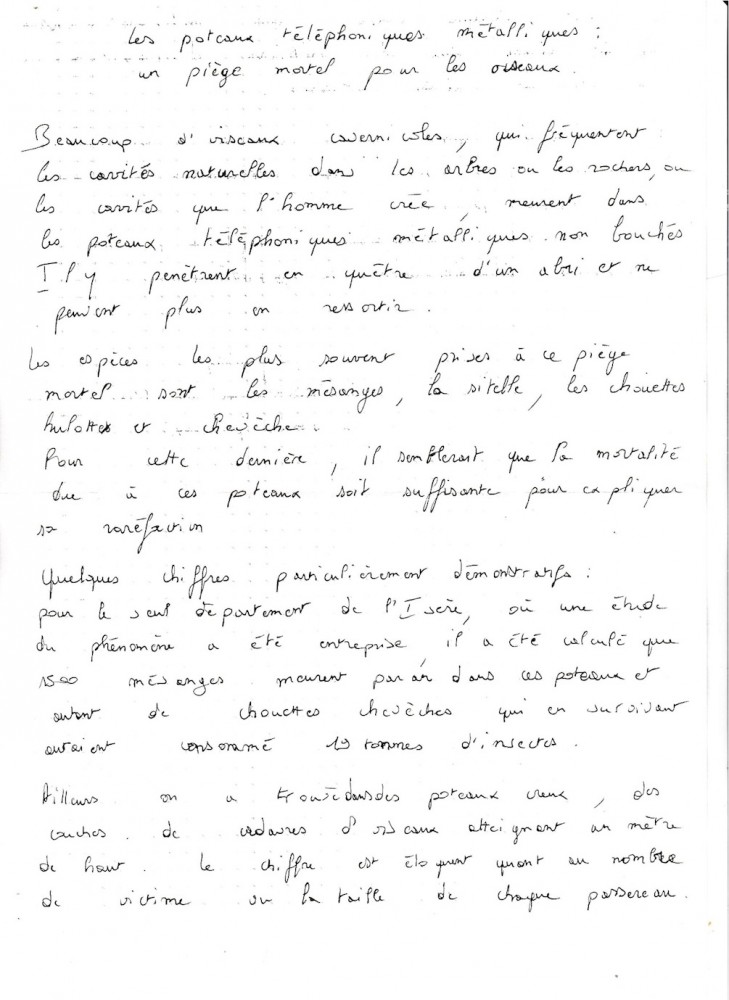 Les poteaux téléphoniques métalliques :
un piège mortel pour les oiseaux.
Beaucoup d'oiseaux cavernicoles, qui fréquentent
les cavités naturelles dans les arbres ou les rochers, ou
les cavités que l'homme crée, meurent dans
les poteaux téléphoniques métalliques non bouchés
Il y penètrent en quète d'un abri et ne
peuvent plus en ressortir.
Les espèces les plus souvent prises à ce piège
mortel sont les mésanges, la sitelle, les chouettes
hulottes et chevèche.
Pour cette dernière, il semblerait que la mortalité
due à ces poteaux soit suffisante pour expliquer
sa raréfaction
Quelques chiffres particulièrement démonstratifs :
pour le seul département de l'Isère, où une étude
du phénomène a été entreprise, il a été calculé que
1500 mésanges meurent par an dans ces poteaux et
autant de chouettes chevèches qui en survivant
auraient consommé 19 tonnes d'insectes.
Ailleurs on a trouvé dans des poteaux creux, des
couches de cadavres d'oiseaux atteignant un mètre
de haut. Le chiffre est éloquent quant au nombre
de victime vu la taille de chaque passereau.